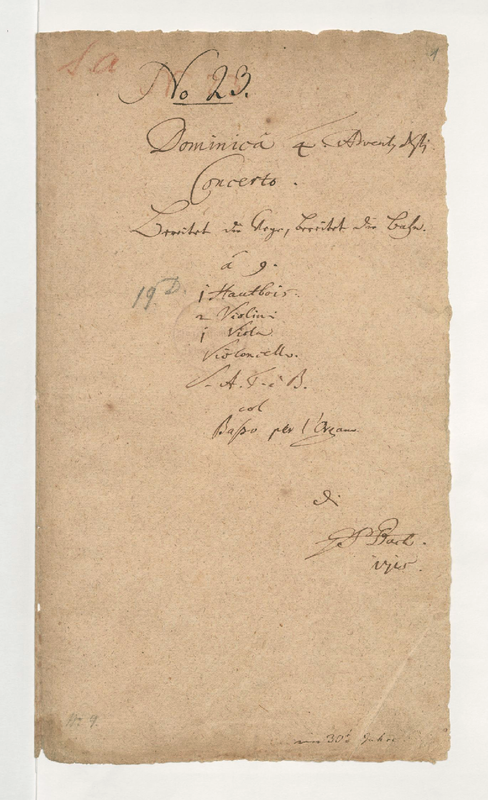 4
S. A
No 23.
Dominicâ 4. Advent,
Concerto.
Bereitet die Wege, bereitet die Bahn.
â 9.
19 D.
1 Hautbois.
2 Violini
1 Viola
Violoncello.
S. A. T. è B.
col
Basso per l'Organo.
di
J S Bach.
1715.
No 9.
30